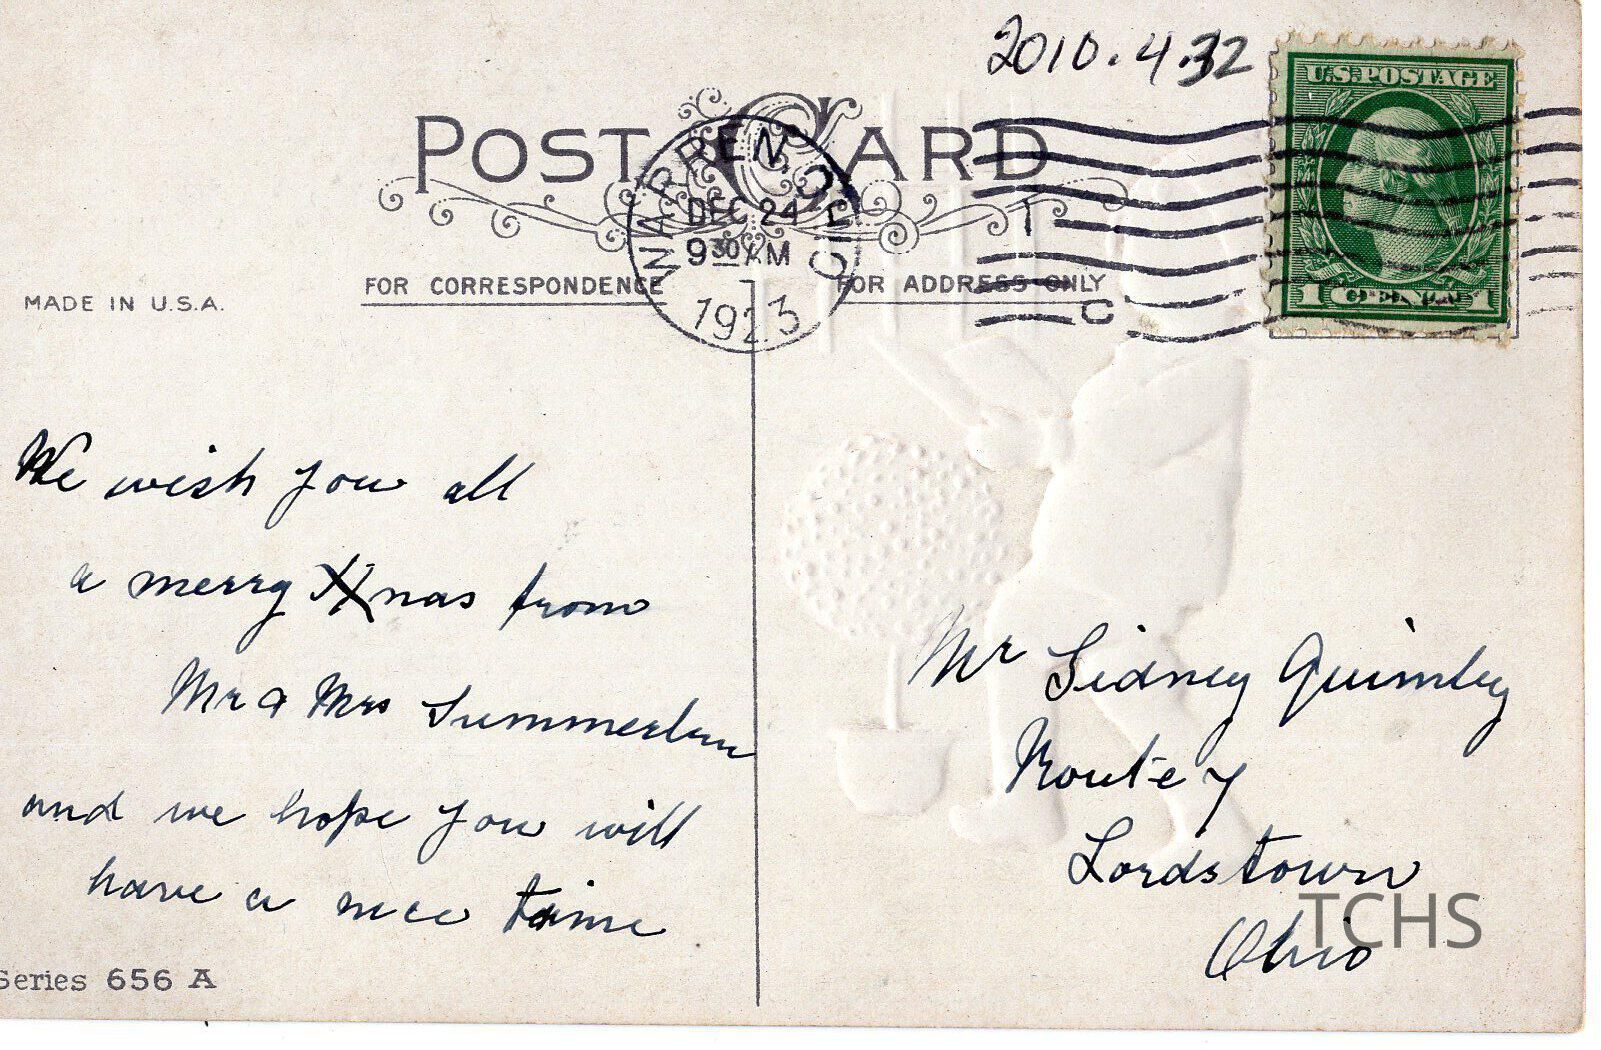 2010.4.32
U.S. POSTAGE
1 CENT 1
POST CARD
WARREN, OHIO
DEC 24
9 30 AM
1923
T
C
FOR CORRESPONDENCE
FOR ADDRESS ONLY
MADE IN U.S.A.
We wish you all
a merry Xmas from
Mr a Mrs Summerlun
and we hope you will
have a nice time
Series 656 A
Mr Sidney Quimby
Route 7
Lordstown
Ohio
TCHS